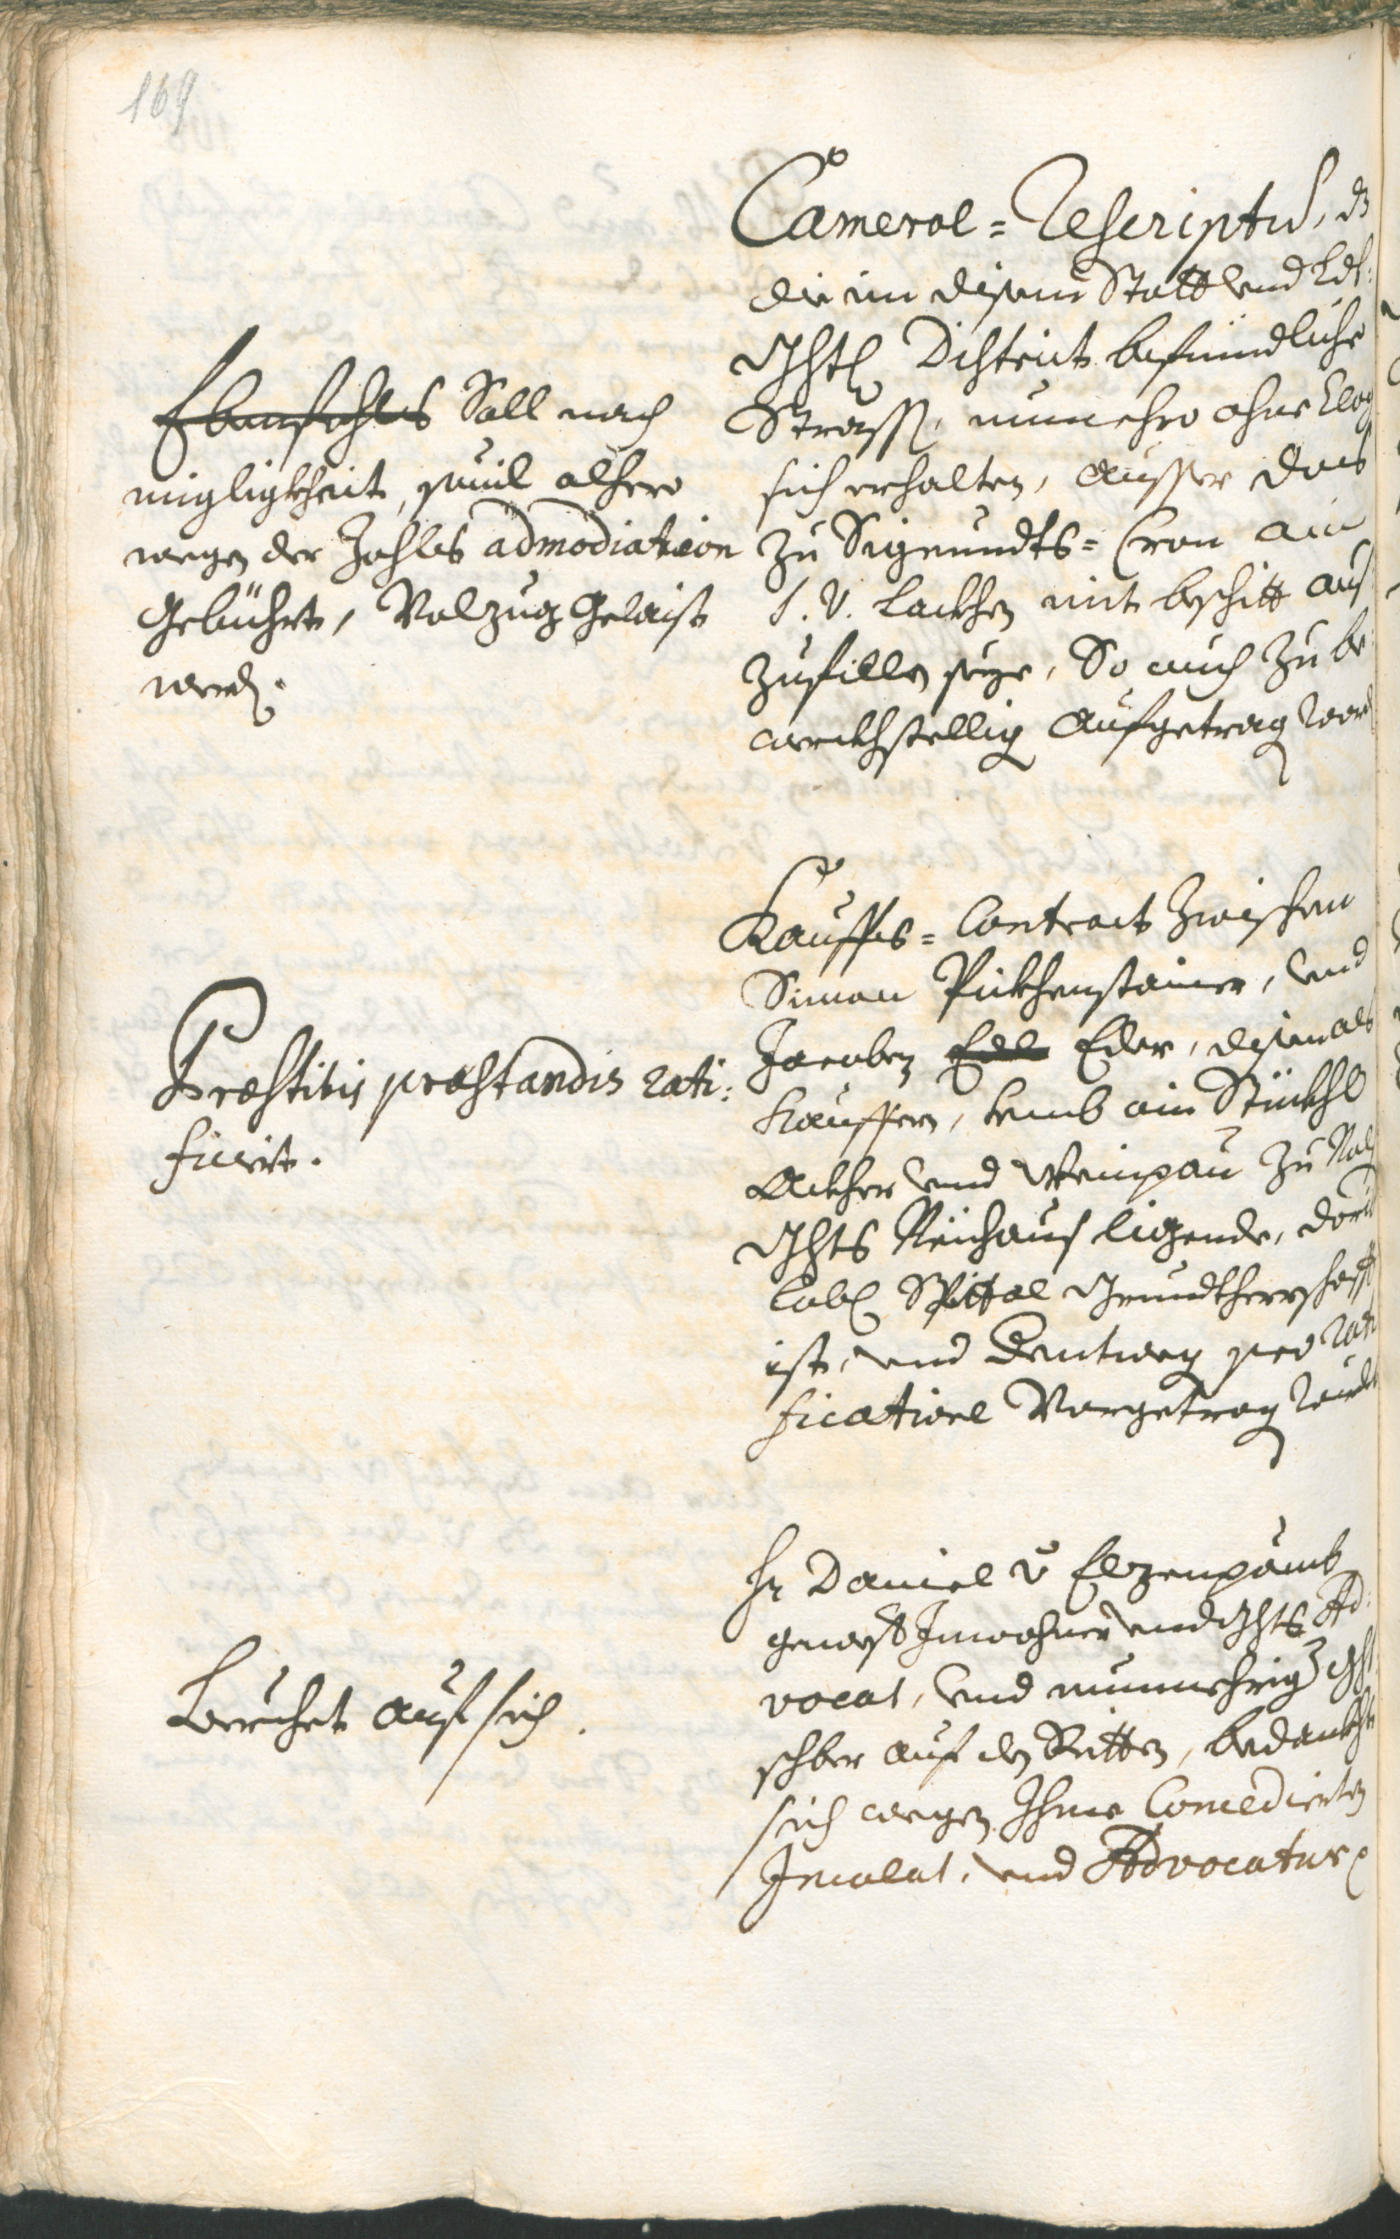 169
Cameral-Rescriptu, dz
die im disem Statt und Ldt:
Ghts District befindliche
Strass, nunmehro ohne Clag
sich erhalten, ausser das
zu Sigmundts-Cron ain
S. V. Lackhen mit beschitt aus
zufillen seye, So auch zu be
werckhstellig aufgetrag word
Ebenfahls Soll nach
migligkheit, sovil alhero
wegen der Zohls admodiation
gebührt, Volzug gelaist
werd.
Kauffs-Contract zwischen
Simon Pückhenstainer, und
Jacoben Edl Eder, disem als
Kauffern, umb ain Stückhl
Ackher und Weinpau zu
Ghts Neühaus ligende, dorü
Lobl Spittal Grundtherrschafft
ist, und dentweg pro rati
ficatione Vorgetrag wirdt
Praestitis praestandis rati:
ficiert.
Hr Daniel v Elzenpaumb
gewest Inwohner und Ghts Ad:
vocat, und nunmehrig Ght
schber auf den Ritten, bedanckht
sich wegen Ihme Concedierten
Incolat, und Advocatur
Beruhet auf sich.